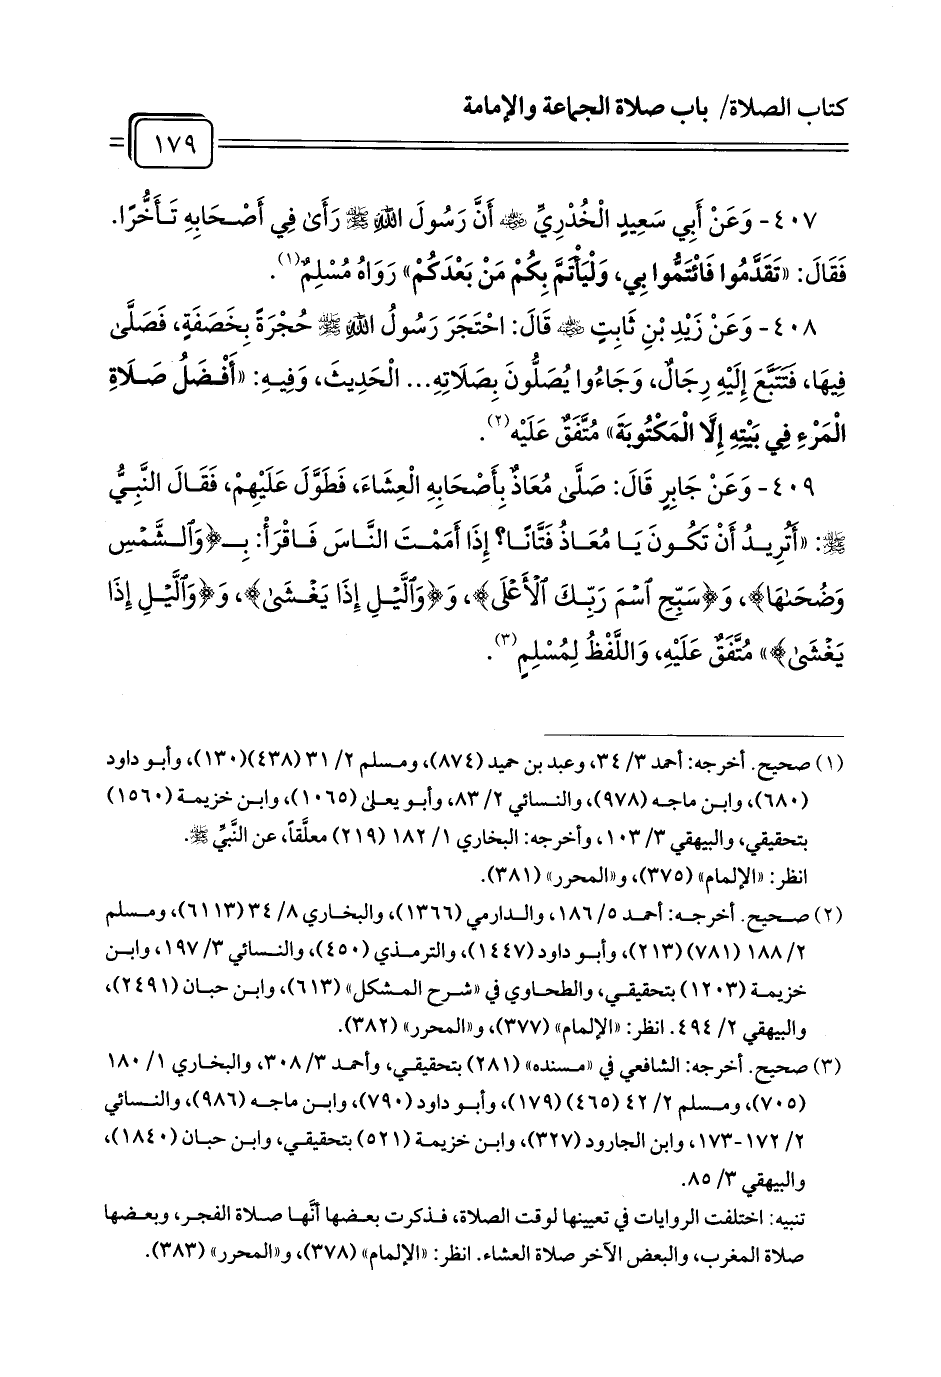 كتاب الصلاة/ باب صلاة الجماعة والإمامة
١٧٩
٤٠٧- وَعَنْ أَبِي سَعِيدٍ الْخُدْرِيِّ ﷺ أَنَّ رَسُولَ اللهِ ﷺ رَأَىٰ فِي أَصْحَابِهِ تَأَخُّرًا.
فَقَالَ: «تَقَدَّمُوا فَائْتَمُّوا بِي، وَلْيَأْتَمَّ بِكُمْ مَنْ بَعْدَكُمْ» رَوَاهُ مُسْلِمٌ(١).
٤٠٨- وَعَنْ زَيْدِ بْنِ ثَابِتٍ ﵁ قَالَ: احْتَجَرَ رَسُولُ اللهِ ﷺ حُجْرَةً بِخَصَفَةٍ، فَصَلَّىٰ
فِيهَا، فَتَتَبَّعَ إِلَيْهِ رِجَالٌ، وَجَاءُوا يُصَلُّونَ بِصَلَاتِهِ... الْحَدِيثَ، وَفِيهِ: «أَفْضَلُ صَلَاةِ
الْمَرْءِ فِي بَيْتِهِ إِلَّا الْمَكْتُوبَةَ» مُتَّفَقٌ عَلَيْهِ(٢).
٤٠٩- وَعَنْ جَابِرٍ قَالَ: صَلَّىٰ مُعَاذٌ بِأَصْحَابِهِ الْعِشَاءَ، فَطَوَّلَ عَلَيْهِمْ، فَقَالَ النَّبِيُّ
ﷺ: «أَتُرِيدُ أَنْ تَكُونَ يَا مُعَاذُ فَتَّانًا؟ إِذَا أَمَمْتَ النَّاسَ فَاقْرَأْ: بِـ﴿وَالشَّمْسِ
وَضُحَىٰهَا﴾، وَ﴿سَبِّحِ اسْمَ رَبِّكَ الْأَعْلَى﴾، وَ﴿وَالَّيْلِ إِذَا يَغْشَىٰ﴾، وَ﴿وَالَّيْلِ إِذَا
يَغْشَىٰ﴾» مُتَّفَقٌ عَلَيْهِ، وَاللَّفْظُ لِمُسْلِمٍ(٣).
(١) صحيح. أخرجه: أحمد ٣/ ٣٤، وعبد بن حميد (٨٧٤)، ومسلم ٢/ ٣١ (٤٣٨)(١٣٠)، وأبو داود
(٦٨٠)، وابن ماجه (٩٧٨)، والنسائي ٢/ ٨٣، وأبو يعلى (١٠٦٥)، وابن خزيمة (١٥٦٠)
بتحقيقي، والبيهقي ٣/ ١٠٣، وأخرجه: البخاري ١/ ١٨٢ (٢١٩) معلَّقاً، عن النَّبيِّ ﷺ.
انظر: «الإلمام» (٣٧٥)، و«المحرر» (٣٨١).
(٢) صحيح. أخرجه: أحمد ٥/ ١٨٦، والدارمي (١٣٦٦)، والبخاري ٨/ ٣٤ (٦١١٣)، ومسلم
٢/ ١٨٨ (٧٨١) (٢١٣)، وأبو داود (١٤٤٧)، والترمذي (٤٥٠)، والنسائي ٣/ ١٩٧، وابن
خزيمة (١٢٠٣) بتحقيقي، والطحاوي في «شرح المشكل» (٦١٣)، وابن حبان (٢٤٩١)،
والبيهقي ٢/ ٤٩٤. انظر: «الإلمام» (٣٧٧)، و«المحرر» (٣٨٢).
(٣) صحيح. أخرجه: الشافعي في «مسنده» (٢٨١) بتحقيقي، وأحمد ٣/ ٣٠٨، والبخاري ١/ ١٨٠
(٧٠٥)، ومسلم ٢/ ٤٢ (٤٦٥) (١٧٩)، وأبو داود (٧٩٠)، وابن ماجه (٩٨٦)، والنسائي
٢/ ١٧٢-١٧٣، وابن الجارود (٣٢٧)، وابن خزيمة (٥٢١) بتحقيقي، وابن حبان (١٨٤٠)،
والبيهقي ٣/ ٨٥.
تنبيه: اختلفت الروايات في تعيينها لوقت الصلاة، فذكرت بعضها أنَّها صلاة الفجر، وبعضها
صلاة المغرب، والبعض الآخر صلاة العشاء. انظر: «الإلمام» (٣٧٨)، و«المحرر» (٣٨٣).